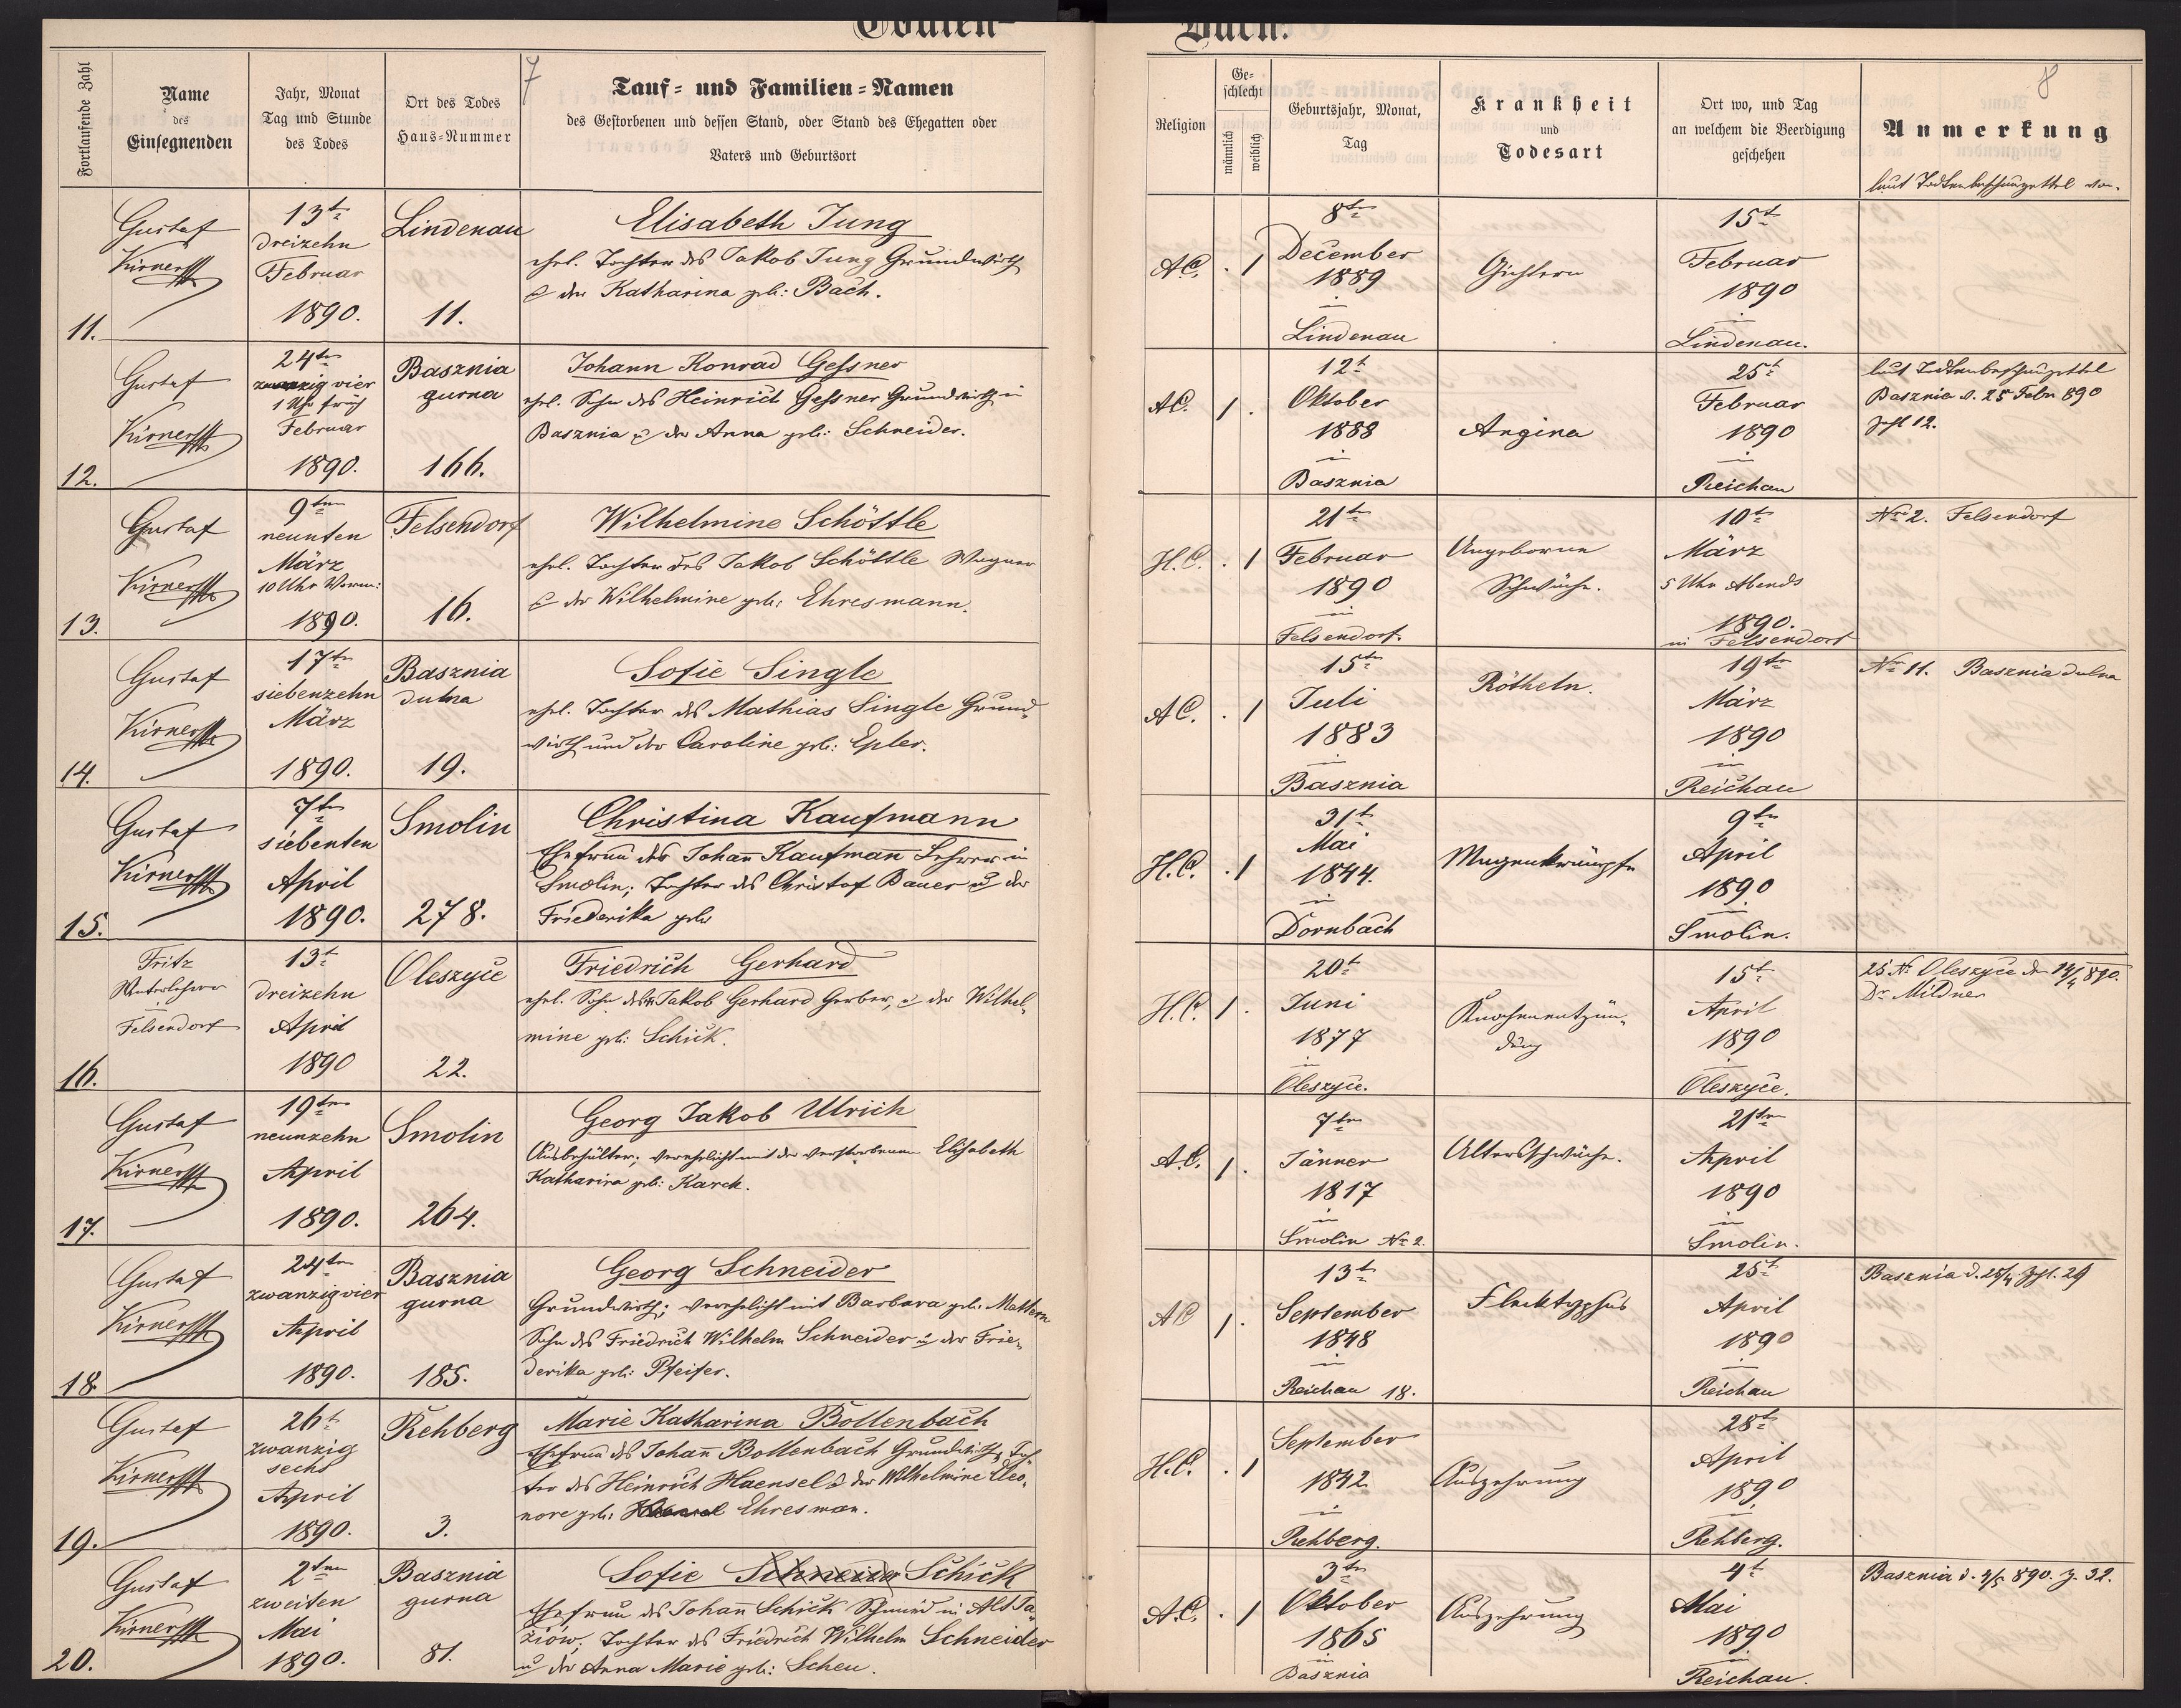 Todten-
Buch.
7
8
Fortlaufende Zahl
Name
des
Einsegnenden
Jahr, Monat
Tag und Stunde
des Todes
Ort des Todes
Haus-Nummer
Tauf- und Familien-Namen
des Gestorbenen und dessen Stand, oder Stand des Ehegatten oder
Vaters und Geburtsort
Religion
Ge-
schlecht
männlich
weiblich
Geburtsjahr, Monat,
Tag
Krankheit
und
Todesart
Ort wo, und Tag
an welchem die Beerdigung
geschehen
Anmerkung
laut Todtenbeschauzettel von.
11.
Gustaf
Kirner
13t
dreizehn
Februar
1890.
Lindenau
11.
Elisabeth Jung
ehel. Tochter des Jakob Jung Grundwirth
u der Katharina geb: Bach.
A.C.
. 1
8ten
December
1889
in
Lindenau
Gichtern
15t
Februar
1890
in
Lindenau.
12.
Gustaf
Kirner
24ten
zwanzig vier
1 Uhr früh
Februar
1890.
Basznia
gurna
166.
Johann Konrad Gessner
ehel. Sohn des Heinrich Gessner Grundwirth in
Basznia u der Anna geb: Schneider.
A.C.
1 .
12t
Oktober
1888
in
Basznia
Angina
25t
Februar
1890
in
Reichau
laut Todtenbeschauzettel
Basznia d. 25 Febr 890
Zahl 12.
13.
Gustaf
Kirner
9ten
neunten
März
10 Uhr Vorm:
1890.
Felsendorf
16.
Wilhelmine Schöttle
ehel. Tochter des Jakob Schöttle Wagner
u der Wilhelmine geb: Ehresmann.
H.C.
. 1
21ten
Februar
1890
in
Felsendorf.
Angeborne
Schwäche.
10t
März
5 Uhr Abends
1890.
in Felsendorf
Nro 2. Felsendorf
14.
Gustaf
Kirner
17ten
siebenzehn
März
1890.
Basznia
dulna
19.
Sofie Single
ehel. Tochter des Mathias Single Grund-
wirth und der Caroline geb: Epler.
A.C.
. 1
15ten
Juli
1883
in
Basznia
Rötheln.
19ten
März
1890
in
Reichau
Nr 11. Basznia dulna
15.
Gustaf
Kirner
7ten
siebenten
April
1890.
Smolin
278.
Christina Kaufmann
Ehefrau des Johan̄ Kaufman̄ Lehrer in
Smolin; Tochter des Christof Bauer u der
Friederika geb
H.C.
. 1
31t
Mai
1844.
in
Dornbach
Magenkrämpfe
9ten
April
1890
Smolin.
16.
Fritz
Unterlehrer
in
Felsendorf
13t
dreizehn
April
1890
Oleszyce
22.
Friedrich Gerhard
ehel. Sohn des Jakob Gerhard Gerber, u der Wilhel-
mine geb: Schick.
H.C.
1 .
20t
Juni
1877
in
Oleszyce.
Knochenentzün-
dung
15t
April
1890
in
Oleszyce.
25 Nr Oleszyce den 14/4 890.
Dr Mildner
17.
Gustaf
Kirner
19ten
neunzehn
April
1890.
Smolin
264.
Georg Jakob Ulrich
Ausbehälter; verehelicht mit der verstorbenen Elisabeth
Katharina geb: Karch.
A.C.
1 .
7ten
Jänner
1817
in
Smolin Nr 2.
Altersschwäche.
21ten
April
1890
in
Smolin.
18.
Gustaf
Kirner
24ten
zwanzigvier
April
1890.
Basznia
gurna
185.
Georg Schneider
Grundwirth; verehelicht mit Barbara geb: Mattern
Sohn des Friedrich Wilhelm Schneider u der Frie-
derika geb: Pfeifer.
A.C
1 .
13t
September
1848
in
Reichau 18.
Flecktyphus
25t
April
1890
in
Reichau
Basznia d. 25/4 Zhl. 29
19.
Gustaf
Kirner
26t
zwanzig
sechs
April
1890.
Rehberg
3.
Marie Katharina Bottenbach
Ehefrau des Johan̄ Bottenbach Grundwirth, Toch-
ter des Heinrich Haensel u der Wilhelmine Eleo-
nore geb: Ehresman.
H.C.
. 1
September
1842
in
Rehberg.
Auszehrung
28t
April
1890
in
Rehberg.
20.
Gustaf
Kirner
2ten
zweiten
Mai
1890.
Basznia
gurna
81.
Sofie Schneider Schick
Ehefrau des Johan̄ Schick Schmid in Alt Ja-
ziów. Tochter des Friedrich Wilhelm Schneider
u der Anna Marie geb: Scheu.
A.C.
. 1
3ten
Oktober
1865
in
Basznia
Auszehrung
4t
Mai
1890
in
Reichau.
Basznia d. 4/5 890. Z. 32.